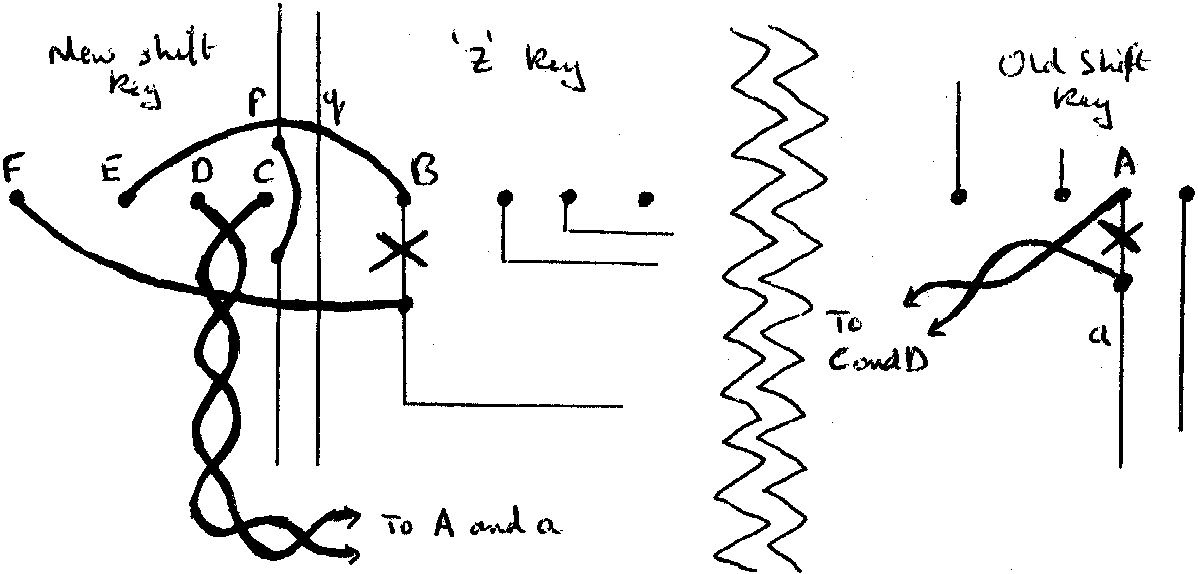 New shift
Key
'Z' Key
Old Shift
Key
P q
F E D C B
A
To
C and D
a
To A and a